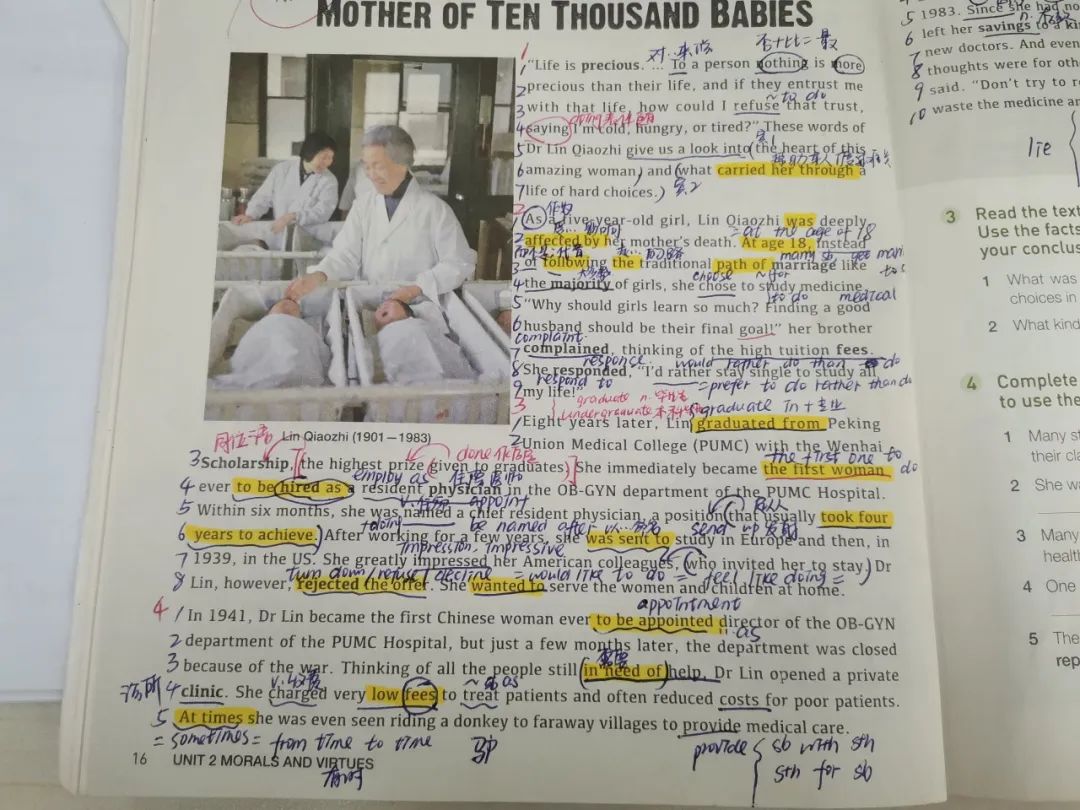 MOTHER OF TEN THOUSAND BABIES
"Life is precious. … To a person nothing is more
precious than their life, and if they entrust me
with that life, how could I refuse that trust,
saying I'm cold, hungry, or tired?" These words of
Dr Lin Qiaozhi give us a look into the heart of this
amazing woman, and what carried her through a
life of hard choices.
As a five-year-old girl, Lin Qiaozhi was deeply
affected by her mother's death. At age 18, instead
= at the age of 18
of following the traditional path of marriage like
the majority of girls, she chose to study medicine.
choose
to do
medical
"Why should girls learn so much? Finding a good
husband should be their final goal!" her brother
complaint
complained, thinking of the high tuition fees.
would rather do than do
She responded, "I'd rather stay single to study all
respond to
= prefer to do rather than do
my life!"
graduate n. 毕业生
undergraduate 本科
graduate in + 专业
Eight years later, Lin graduated from Peking
Union Medical College (PUMC) with the Wenhai
Lin Qiaozhi (1901–1983)
同位语
the first one to do
Scholarship, the highest prize given to graduates. She immediately became the first woman
employ as
ever to be hired as a resident physician in the OB-GYN department of the PUMC Hospital.
appoint
Within six months, she was named a chief resident physician, a position that usually took four
doing
be named after
send up 发射
years to achieve. After working for a few years, she was sent to study in Europe and then, in
impression. impressive
1939, in the US. She greatly impressed her American colleagues, who invited her to stay. Dr
turn down / refuse / decline
= would like to do = feel like doing =
Lin, however, rejected the offer. She wanted to serve the women and children at home.
appointment
In 1941, Dr Lin became the first Chinese woman ever to be appointed director of the OB-GYN
as
department of the PUMC Hospital, but just a few months later, the department was closed
需要
because of the war. Thinking of all the people still in need of help, Dr Lin opened a private
诊所
v. 收费
~ sb as
clinic. She charged very low fees to treat patients and often reduced costs for poor patients.
At times she was even seen riding a donkey to faraway villages to provide medical care.
= sometimes = from time to time
驴
provide { sb with sth
sth for sb
有时
16 UNIT 2 MORALS AND VIRTUES
1983. Since she had no
left her savings to a ki
new doctors. And even
thoughts were for oth
said. "Don't try to r
waste the medicine an
lie
3 Read the text
Use the facts
your conclus
1 What was
choices in
2 What kind
4 Complete
to use the
1 Many st
their cla
2 She wa
3 Many
healt
4 One
5 The
rep